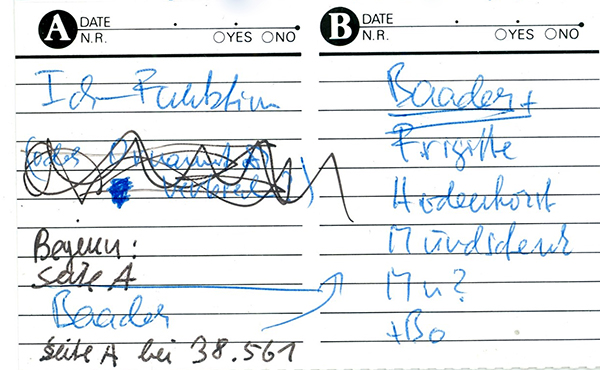 A DATE
N.R. YES NO
Ich-Funktion
(oder
Beginn:
Seite A
Baader
Seite A bei 38.561
B DATE
N.R. YES NO
Baader +
Brigitte
Mundschenk
Mu?
+Bo